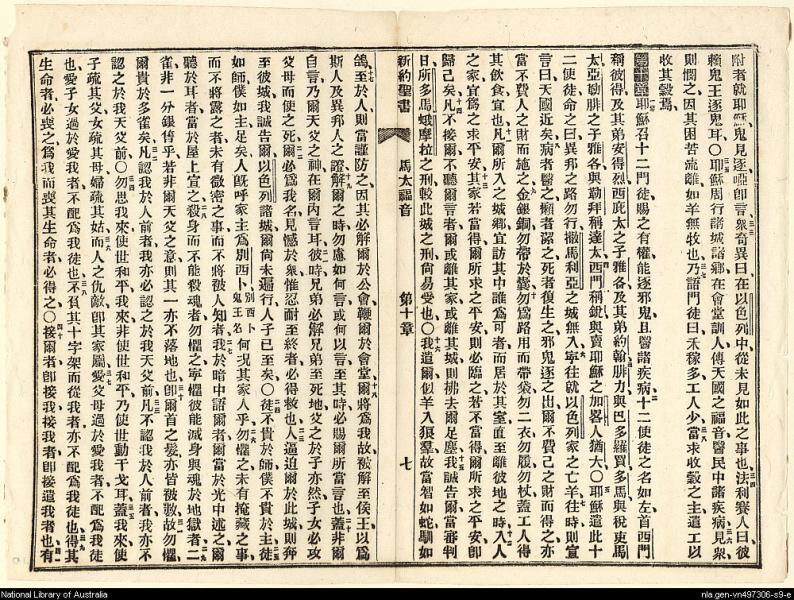 附者就耶穌鬼見逐啞卽言衆奇異曰在以色列中從未見如此之事也法利賽人曰彼
賴鬼王逐鬼耳〇耶穌周行諸城諸鄉在會堂訓人傳天國之福音醫民中諸疾病見衆
則憫之因其困苦流離如羊無牧也乃語門徒曰禾稼多工人少當求收穀之主遣工以
收其穀焉
第十章耶穌召十二門徒賜之有權能逐邪鬼且醫諸疾病十二使徒之名如左首西門
稱彼得及其弟安得烈西庇太之子雅各及其弟約翰腓力與巴多羅買多馬與稅吏馬
太亞勒腓之子雅各與勒拜稱達太西門稱銳與賣耶穌之加畧人猶大〇耶穌遣此十
二使徒命之曰異邦之路勿行撒馬利亞之城無入寧往就以色列家之亡羊往時則宣
言曰天國近矣病者醫之癩者潔之死者復生之邪鬼逐之出爾不費己之財而得之亦
當不費人之財而施之金銀銅勿帶於囊勿爲路用而帶袋勿二衣勿履勿杖蓋工人得
其飲食宜也凡爾所入之城鄉宜訪其中誰爲可者而居於其室直至離彼地之時入人
之家宜爲之求平安其家若當得爾所求之平安則必臨之若不當得爾所求之平安卽
歸己矣凡不接爾不聽爾言者爾或離其家或離其城則拂去爾足塵我誠告爾當審判
日所多馬蛾摩拉之刑較此城之刑尚易受也〇我遣爾似羊入狼羣故當智如蛇馴如
新約聖書 馬太福音 第十章 七
鴿至於人則當謹防之因其必解爾於公會鞭爾於會堂爾將爲我故被解至侯王以爲
斯人及異邦人之證解爾之時勿慮如何言或何以言至其時必賜爾所當言也蓋非爾
自言乃爾天父之神在爾內言耳彼時兄弟必解兄弟至死地父之於子亦然子女必攻
父母而使之死爾必爲我名見憾於衆惟忍耐至終者必得救也人逼迫爾於此城則奔
至彼城我誠告爾以色列諸城爾尚未遍行人子已至矣〇徒不貴於師僕不貴於主徒
如師僕如主足矣人旣呼家主爲別西卜別西卜鬼王名何况其家人乎勿懼之未有掩藏之事
而不將露之者未有微密之事而不將被人知者我於暗中語爾者爾當於光中述之爾
聽於耳者當於屋上宣之殺身而不能殺魂者勿懼之寧懼彼能滅身與魂於地獄者二
雀非一分銀售乎若非爾天父之意則其一亦不落地也卽爾首之髮亦皆被數故勿懼
爾貴於多雀矣凡認我於人前者我亦必認之於我天父前凡不認我於人前者我亦不
認之於我天父前〇勿思我來使世和平我來非使世和平乃使世動干戈耳蓋我來使
子疏其父女疏其母婦疏其姑而人之仇敵卽其家屬愛父母過於愛我者不配爲我徒
也愛子女過於愛我者不配爲我徒也不負其十字架而從我者亦不配爲我徒也得其
生命者必喪之爲我而喪其生命者必得之〇接爾者卽接我接我者卽接遣我者也有
National Library of Australia
nla.gen-vn497306-s9-e